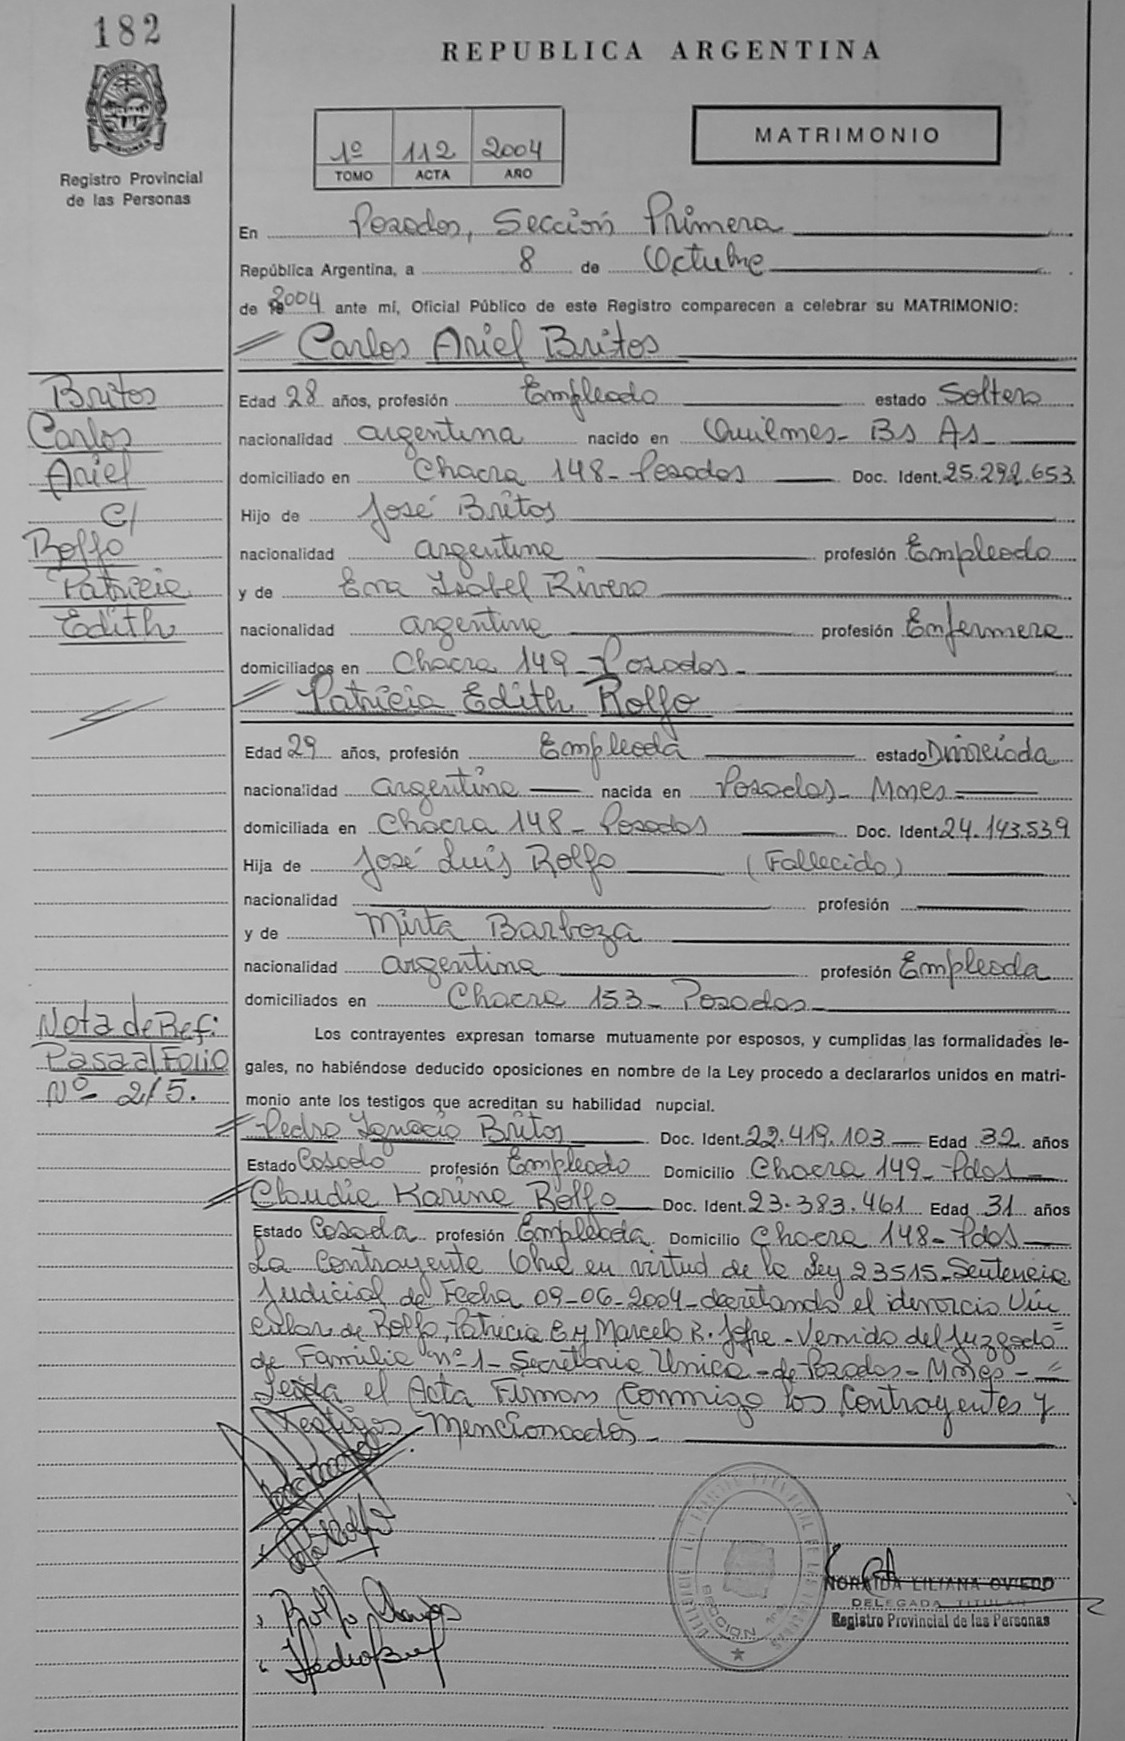 182
REPUBLICA ARGENTINA
1º 112 2004
TOMO ACTA AÑO
MATRIMONIO
Registro Provincial
de las Personas
En Posadas, Sección Primera
República Argentina, a 8 de Octubre
de 2004 ante mí, Oficial Público de este Registro comparecen a celebrar su MATRIMONIO:
Carlos Ariel Britos
Britos
Carlos
Ariel
C/
Rolfo
Patricia
Edith
Edad 28 años, profesión Empleado estado Soltero
nacionalidad argentina nacido en Quilmes- Bs As
domiciliado en Chacra 148- Posadas Doc. Ident. 25.292.653
Hijo de José Britos
nacionalidad argentina profesión Empleado
y de Ena Isabel Rivero
nacionalidad argentina profesión Enfermera
domiciliados en Chacra 149- Posadas-
Patricia Edith Rolfo
Edad 29 años, profesión Empleada estado Divorciada
nacionalidad argentina nacida en Posadas- Mnes-
domiciliada en Chacra 148- Posadas Doc. Ident. 24.143.539
Hija de José Luis Rolfo (Fallecido)
nacionalidad profesión
y de Mirta Barboza
nacionalidad argentina profesión Empleada
domiciliados en Chacra 153- Posadas-
Nota de Ref:
Pasa al Folio
Nº- 215.
Los contrayentes expresan tomarse mutuamente por esposos, y cumplidas las formalidades le-
gales, no habiéndose deducido oposiciones en nombre de la Ley procedo a declararlos unidos en matri-
monio ante los testigos que acreditan su habilidad nupcial.
Pedro Ignacio Britos Doc. Ident. 22.419.103 Edad 32 años
Estado Casado profesión Empleado Domicilio Chacra 149- Pdas
Claudia Karina Rolfo Doc. Ident. 23.383.461 Edad 31 años
Estado Casada profesión Empleada Domicilio Chacra 148- Pdas
La Contrayente Obra en virtud de la Ley 23515- Sentencia
Judicial de Fecha 09-06-2004- decretando el divorcio Vin
cular de Rolfo, Patricia E. y Marcelo R. Jofre- Venido del Juzgado
de Familia nº 1- Secretaria Unica- de Posadas- Mnes-
Leída el Acta Firman Conmigo los Contrayentes y
Testigos Mencionados-
SECCION
NORAIDA LILIANA OVIEDO
DELEGADA TITULAR
Registro Provincial de las Personas